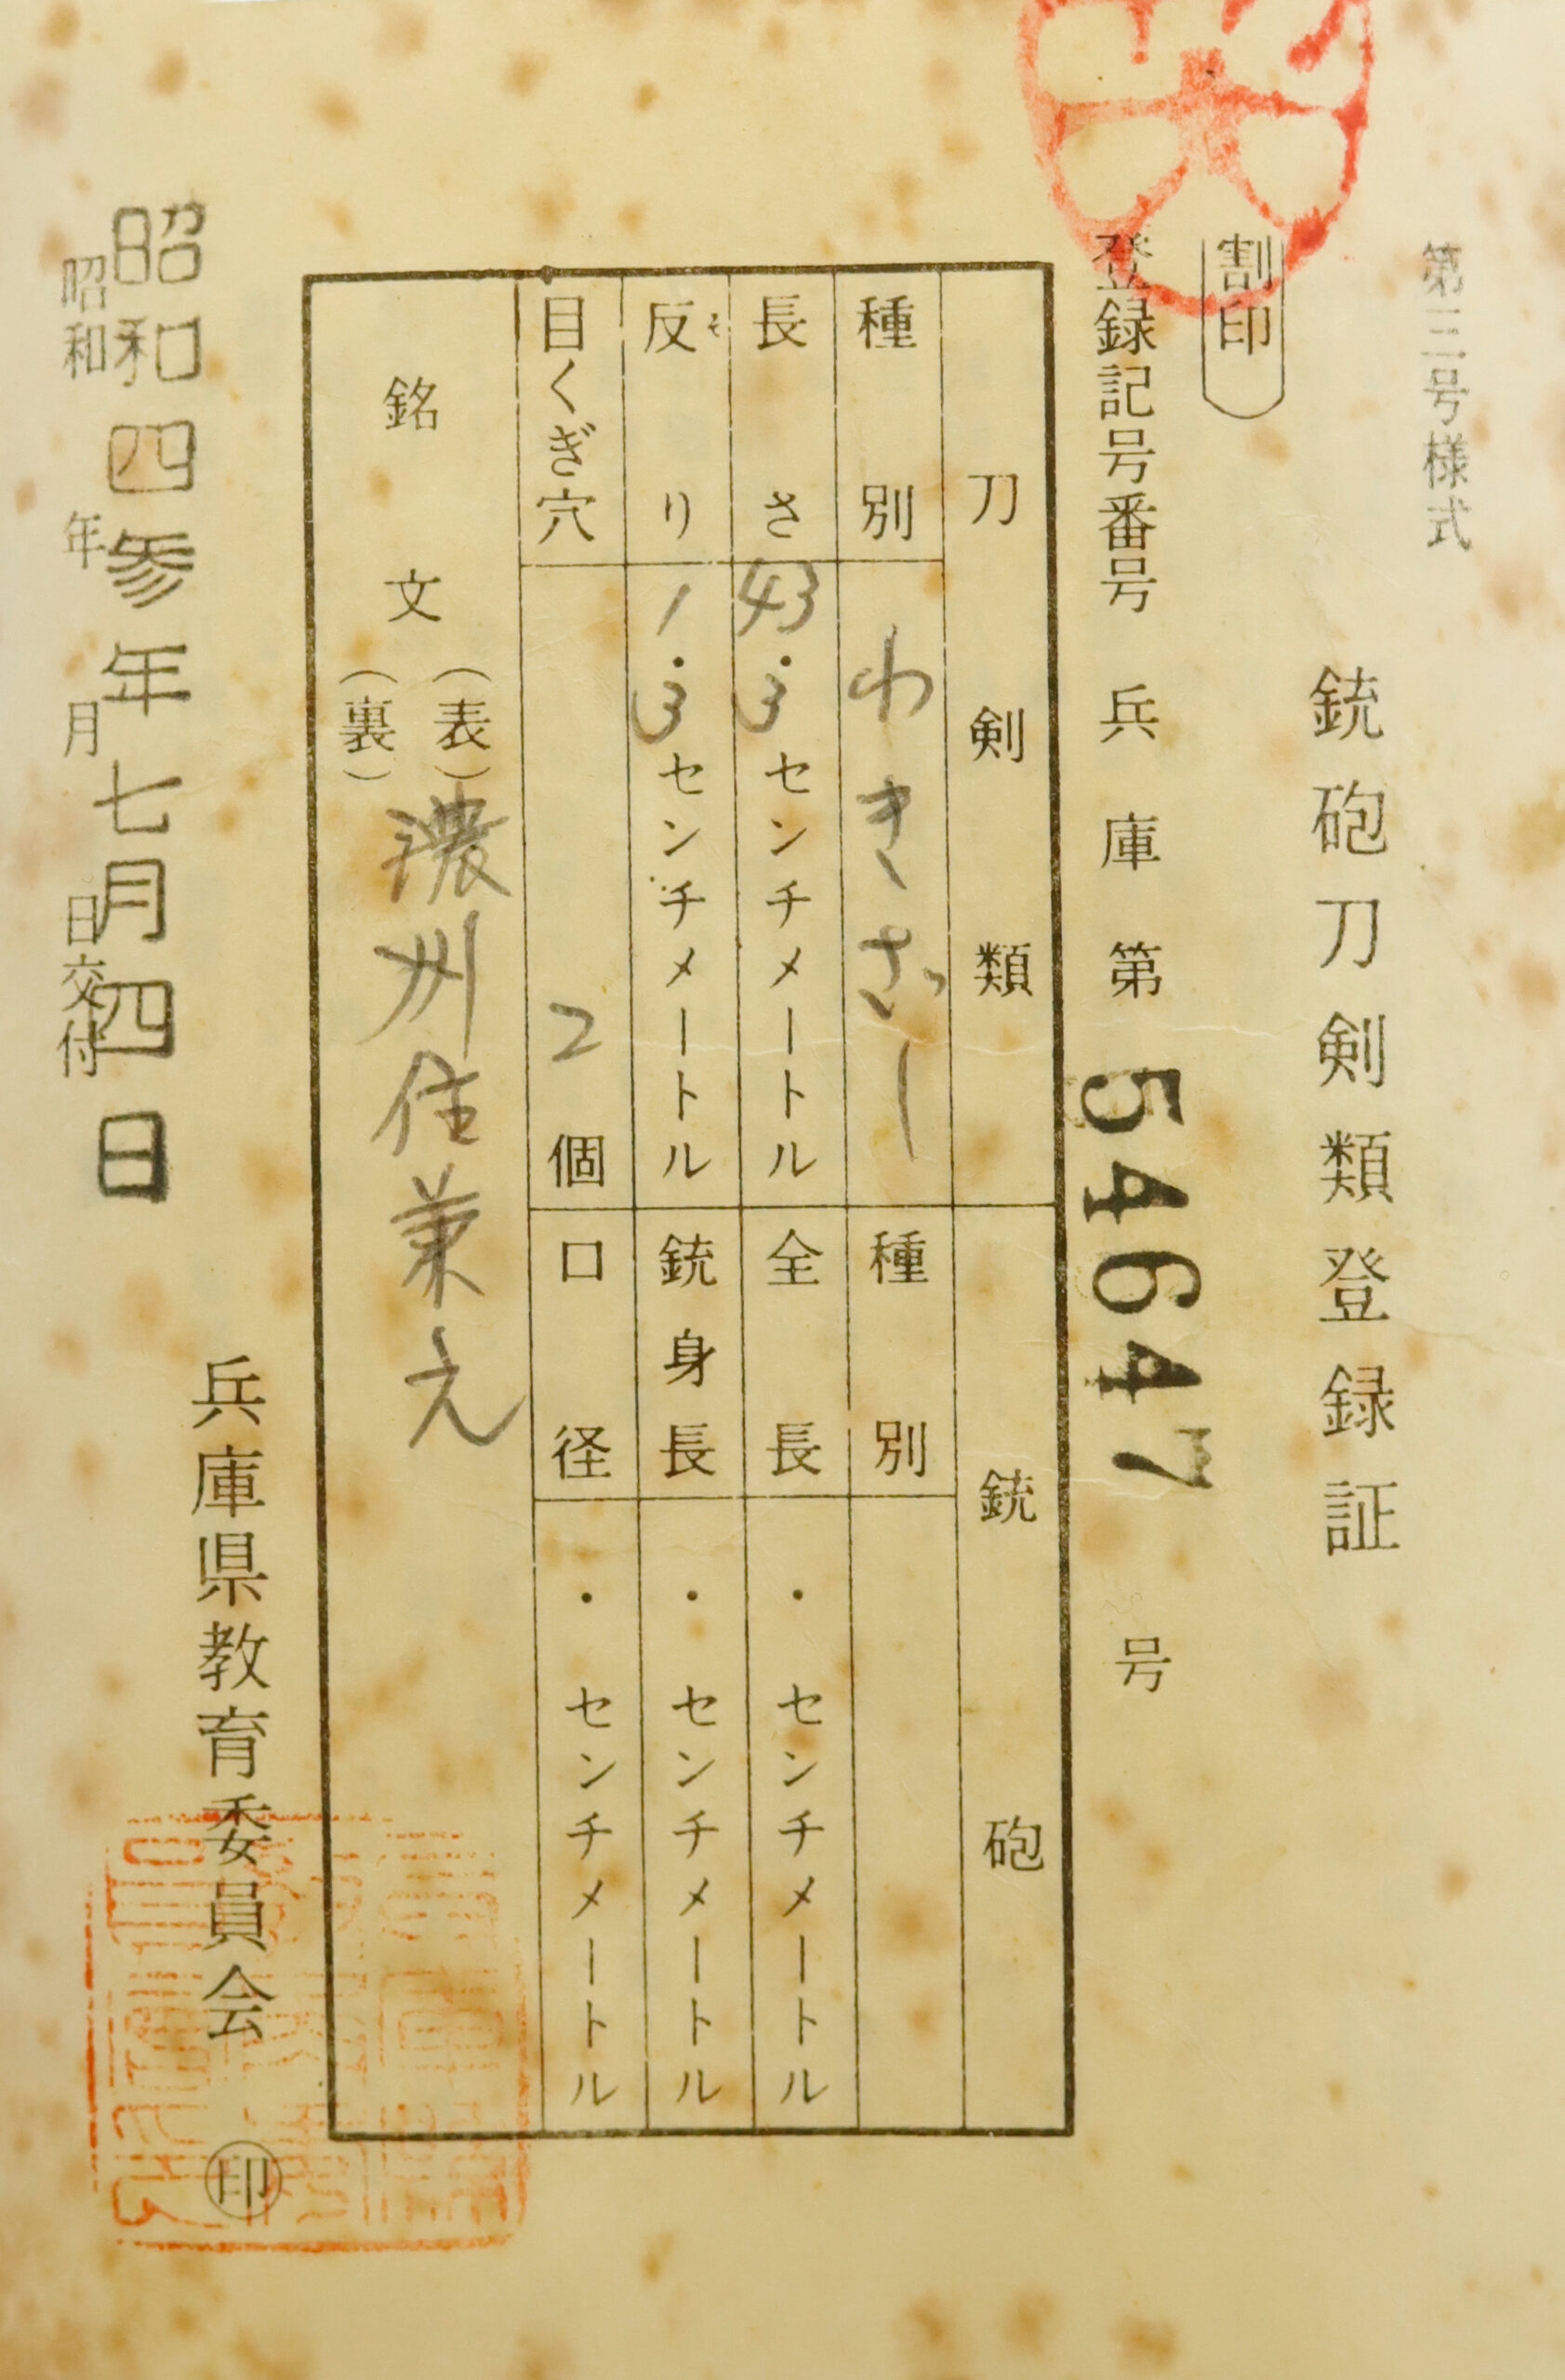 第三号様式
銃砲刀剣類登録証
割印
登録記号番号 兵庫第 54647 号
刀剣類 銃砲
種別 わきざし 種別
長さ 43.3センチメートル 全長 ・センチメートル
反り 1.3センチメートル 銃身長 ・センチメートル
そ
目くぎ穴 2個 口径 ・センチメートル
銘文 (表) 濃州住兼元
(裏)
兵庫県教育委員会 印
昭和四参年七月四日
昭和 年 月 日交付